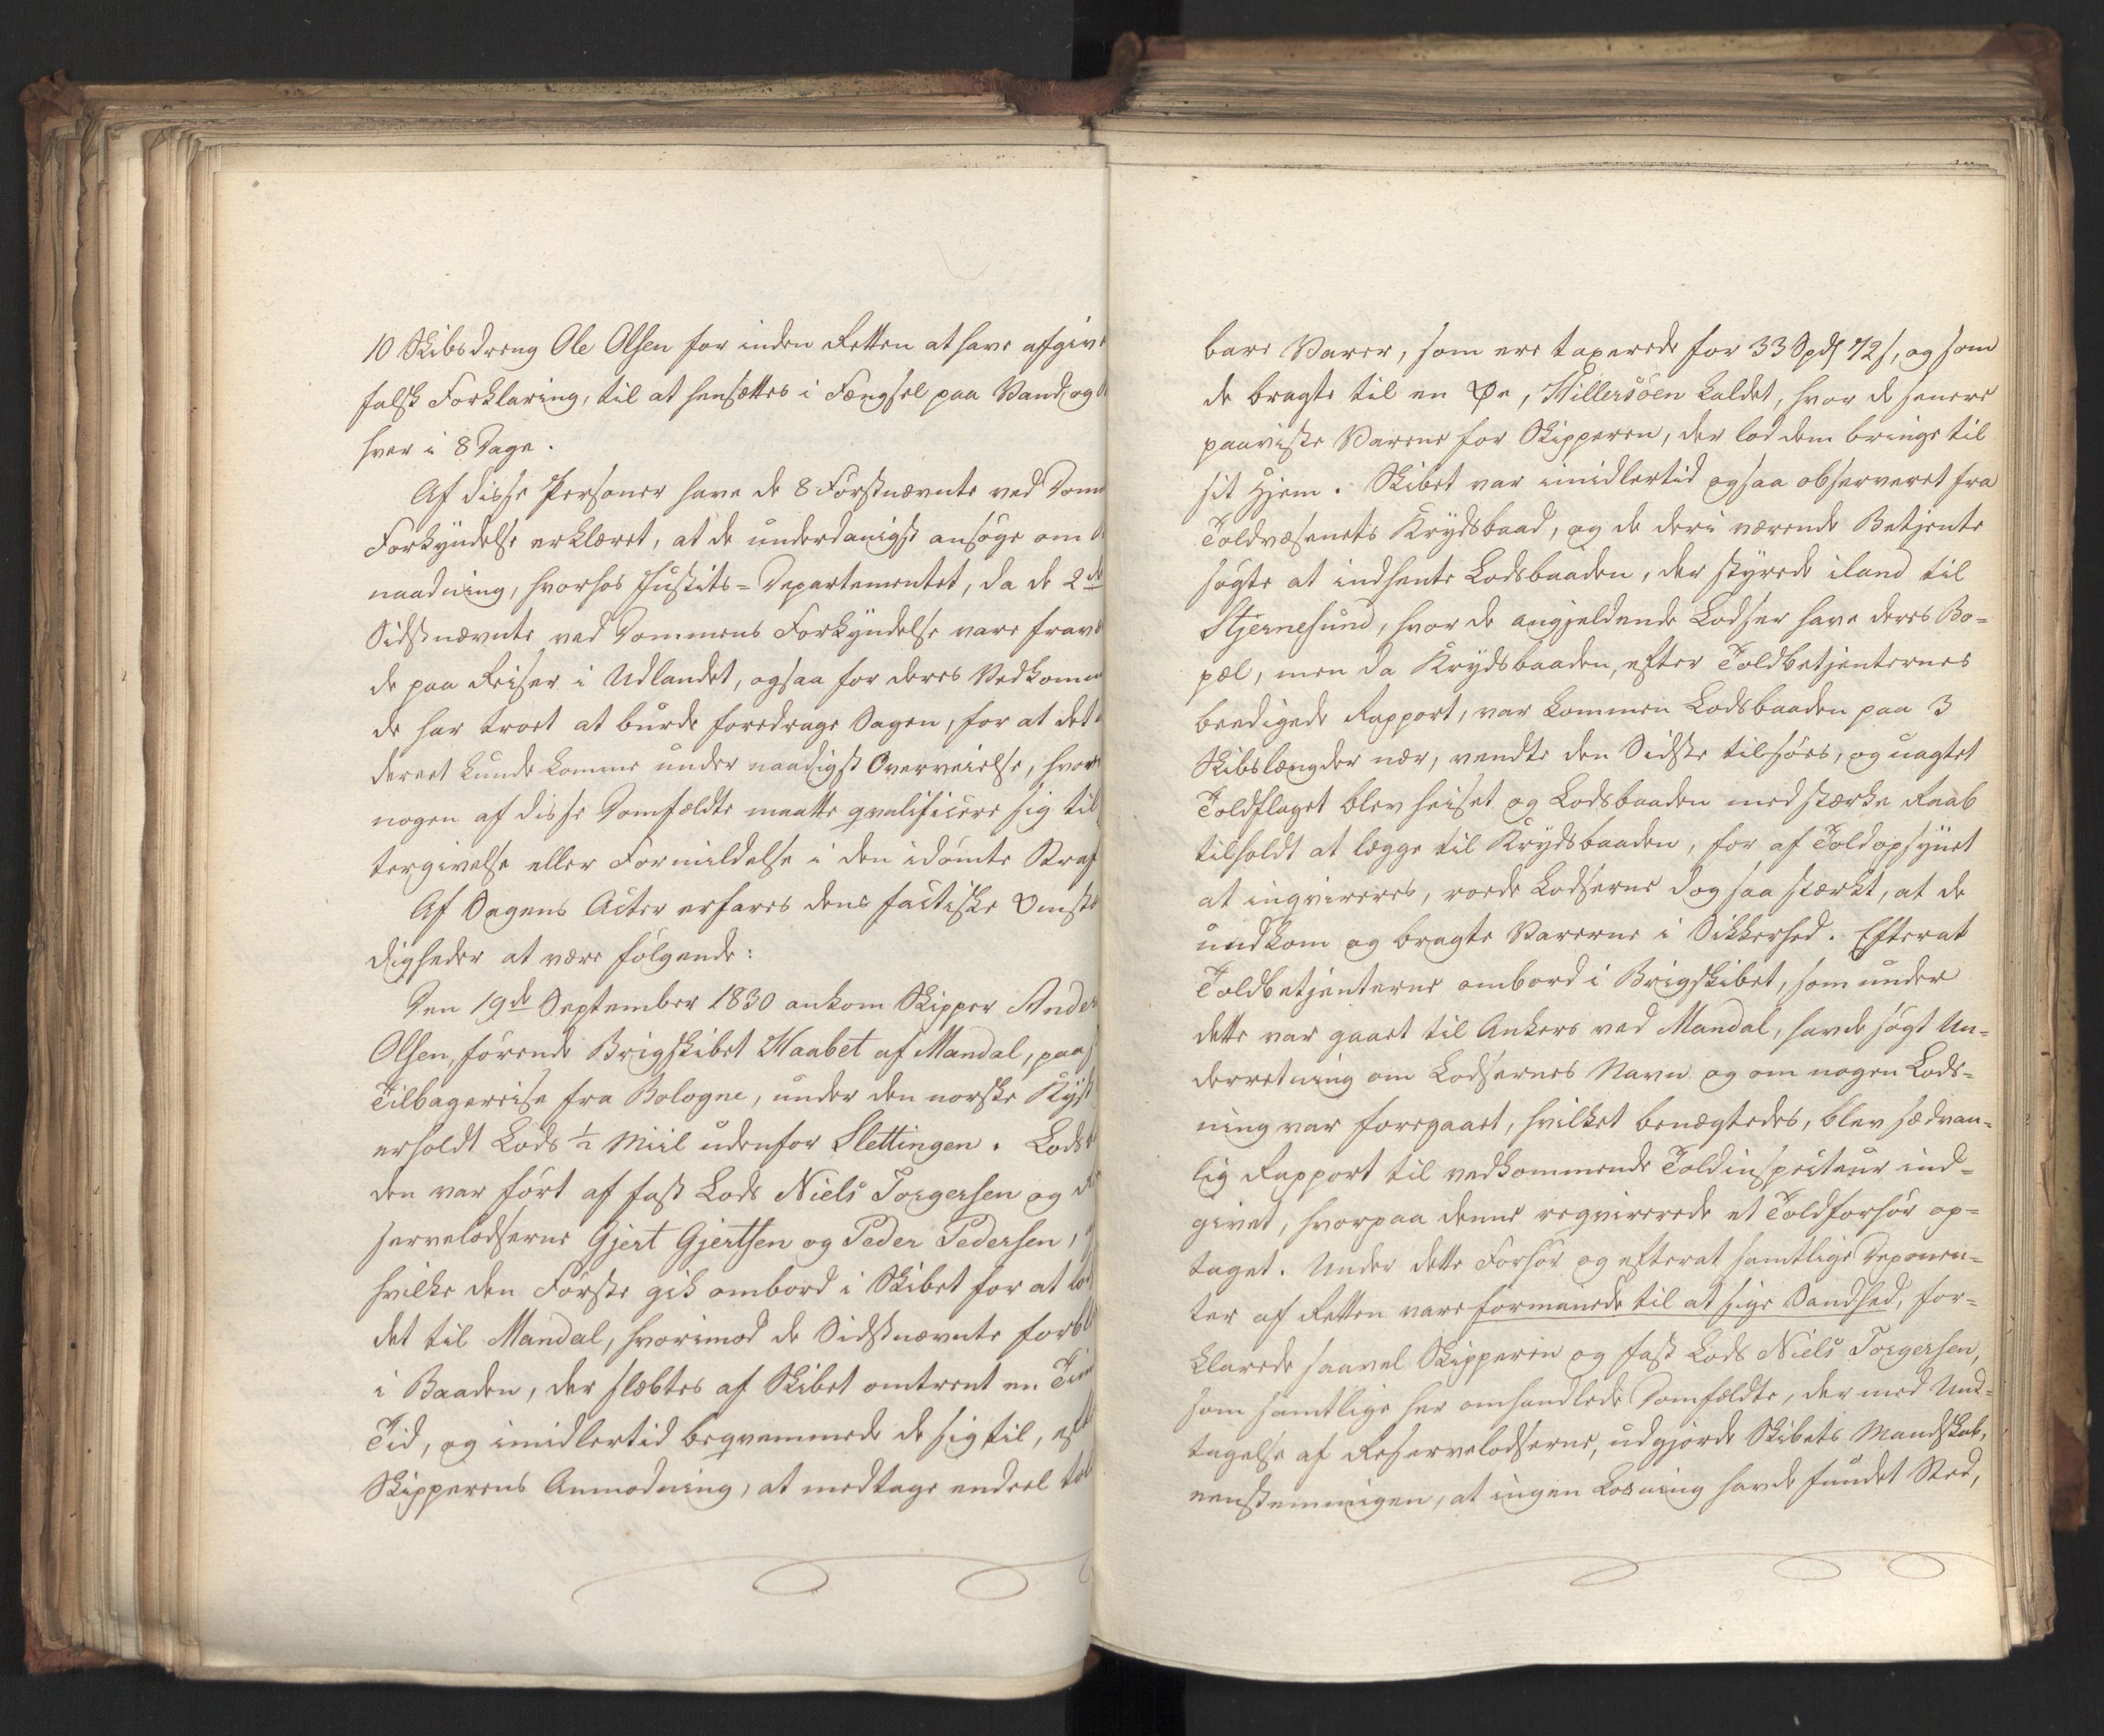 10 Skibsdreng Ole Olsen for inden Retten at have afgive
falsk Forklaring, til at hensættes i Fængsel paa Vand og
hver i 8 Dage.
Af disse Personer have de 8 Førstnævnte ved Dom
Forkyndelse erklæret, at de underdanigst ansøge om
naadning, hvorhos Justits=Departementet, da de 2de
Sidstnævnte ved Dommens Forkyndelse vare fravæ
de paa Reiser i Udlandet, ogsaa for deres Vedkomm
de har troet at burde foredrage Sagen, for at det
derved kunde komme under naadigst Overveielse, hvor
nogen af disse Domfældte maatte qvalificere sig til
tergivelse eller Formildelse i den idømte Straf
Af Sagens Acter erfares dens factiske Omstæ
digheder at være følgende:
Den 19de September 1830 ankom Skipper Ander
Olsen, førende Brigskibet Haabet af Mandal, paa
Tilbagereise fra Bologne, under den norske Kyst
erholdt Lods ½ Miil udenfor Slettingen. Lods
den var ført af fast Lods Niels Torgersen og
servelodserne Gjert Gjertsen og Peder Pedersen,
hvilke den Første gik ombord i Skibet for at lod
det til Mandal, hvorimod de Sidstnævnte forbl
i Baaden, der slæbtes af Skibet omtrent en Tim
Tid, og imidlertid beqvemmede de sig til, eft
Skipperens Anmodning, at medtage endeel tol
bare Varer, som ere taxerede for 33 Spd 72 s, og som
de bragte til en Øe, Hillersöen kaldet, hvor de senere
paaviste Varene for Skipperen, der lod dem bringe til
sit Hjem. Skibet var imidlertid ogsaa observeret fra
Toldvæsenets Krydsbaad, og de deri værende Betjente
søgte at indhente Lodsbaaden, der styrede iland til
Stjernesund, hvor de angjeldende Lodser have deres Bo=
pæl, men da Krydsbaaden, efter Toldbetjenternes
beedigede Rapport, var kommen Lodsbaaden paa 3
Skibslængder nær, vendte den Sidste tilsøes, og uagtet
Toldflaget blev heiset og Lodsbaaden med stærke Raab
tilholdt at lægge til Krydsbaaden, for af Toldopsynet
at inqvireres, roede Lodserne dog saa stærkt, at de
undkom og bragte Varerne i Sikkerhed. Efterat
Toldbetjenterne ombord i Brigskibet, som under
dette var gaaet til Ankers ved Mandal, havde søgt Un=
derretning om Lodsernes Navn og om nogen Lods=
ning var foregaaet, hvilket benægtedes, blev sædvan=
lig Rapport til vedkommende Toldinspecteur ind=
givet, hvorpaa denne reqvirerede et Toldforhør op=
taget. Under dette Forhør og efterat samtlige Deponen=
ter af Retten vare formanede til at sige Sandhed, for=
klarede saavel Skipperen og fast Lods Niels Torgersen,
som samtlige her omhandlede Domfældte, der med Und=
tagelse af Reservelodserne, udgjorde Skibets Mandskab,
eenstemmigen, at ingen Losning havde fundet Sted,